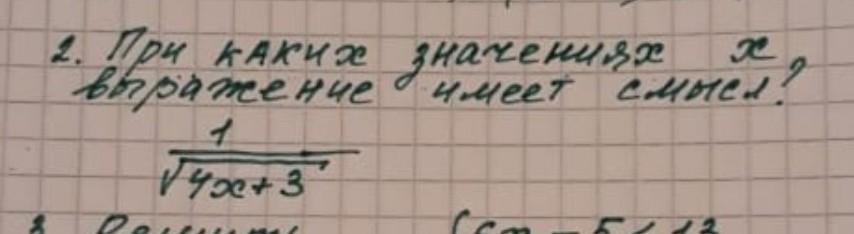 2. При каких значениях x
выражение имеет смысл?
1
√4x+3
3. Решить